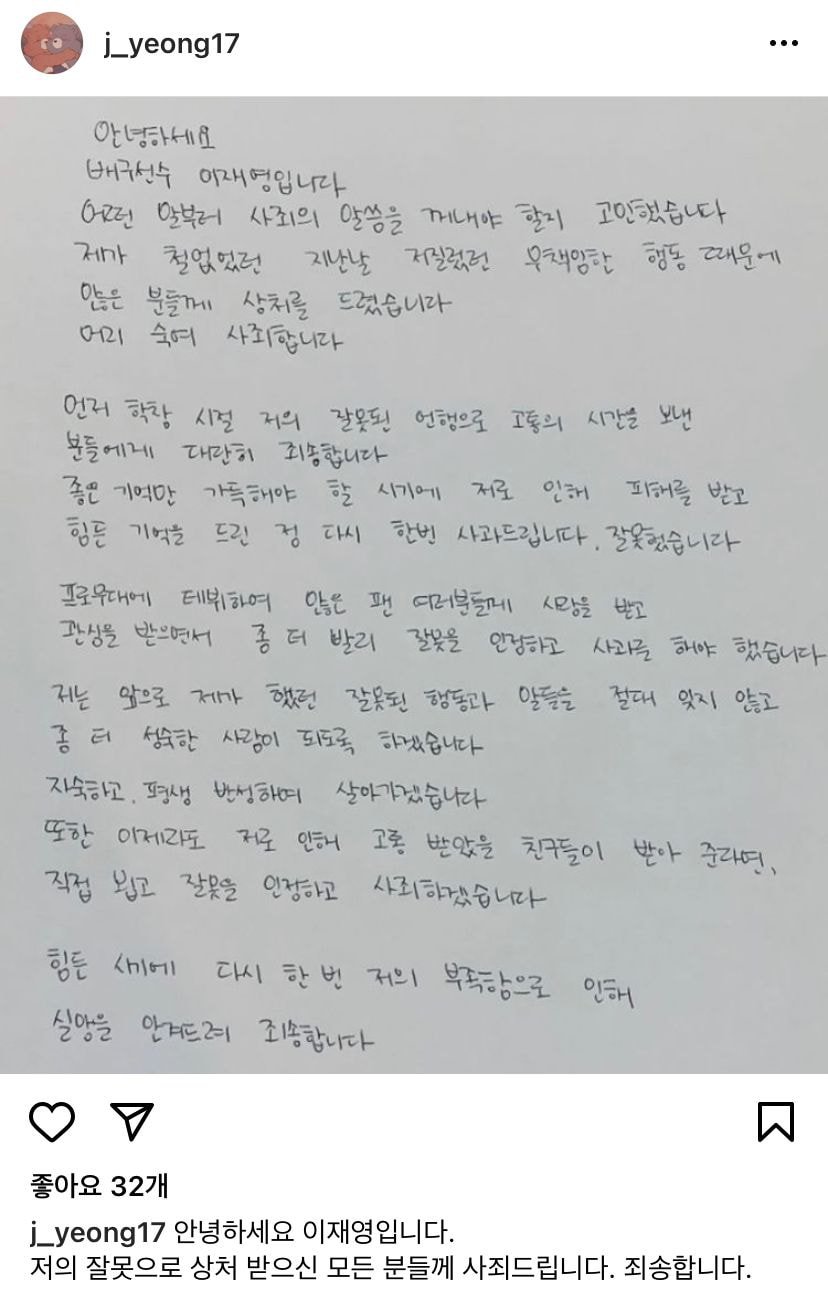 j_yeong17
안녕하세요
배구선수 이재영입니다
어떤 말부터 사죄의 말씀을 꺼내야 할지 고민했습니다
제가 철없었던 지난날 저질렀던 무책임한 행동 때문에
많은 분들께 상처를 드렸습니다
머리 숙여 사죄합니다
먼저 학창 시절 저의 잘못된 언행으로 고통의 시간을 보낸
분들에게 대단히 죄송합니다
좋은 기억만 가득해야 할 시기에 저로 인해 피해를 받고
힘든 기억을 드린 점 다시 한번 사과드립니다. 잘못했습니다
프로무대에 데뷔하여 많은 팬 여러분들께 사랑을 받고
관심을 받으면서 좀 더 빨리 잘못을 인정하고 사과를 해야 했습니다
저는 앞으로 제가 했던 잘못된 행동과 말들을 절대 잊지 않고
좀 더 성숙한 사람이 되도록 하겠습니다
자숙하고, 평생 반성하며 살아가겠습니다
또한 이제라도 저로 인해 고통 받았을 친구들이 받아 준다면,
직접 뵙고 잘못을 인정하고 사죄하겠습니다
힘든 시기에 다시 한 번 저의 부족함으로 인해
실망을 안겨드려 죄송합니다
좋아요 32개
j_yeong17 안녕하세요 이재영입니다.
저의 잘못으로 상처 받으신 모든 분들께 사죄드립니다. 죄송합니다.